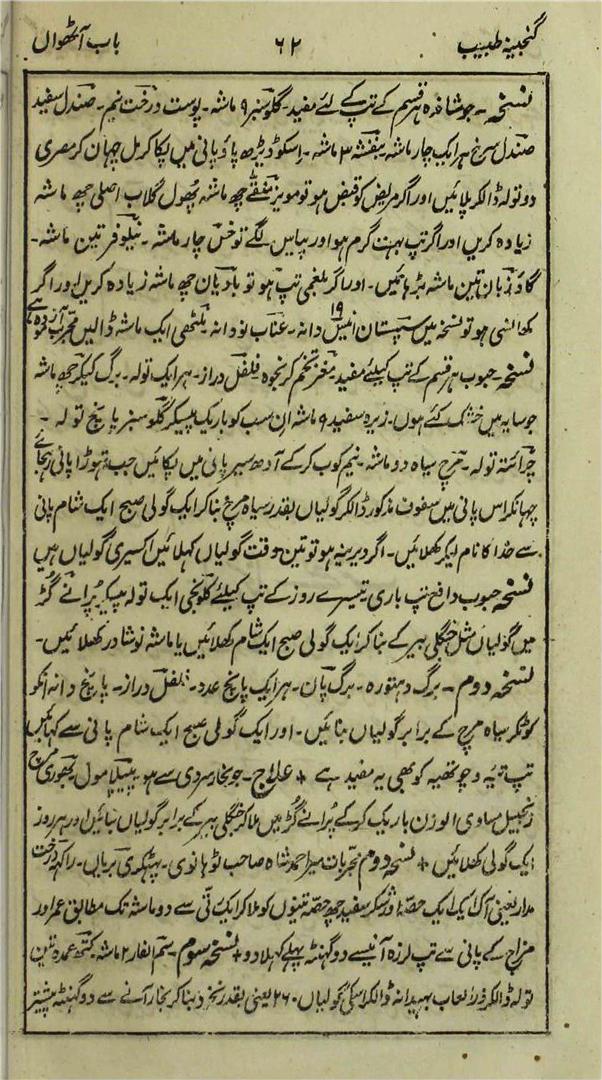 گنجینۂ طبیب ۶۲ باب آٹھواں
نسخہ۔ جوشاندہ ہر قسم کے تپ کے لئے مفید۔ گلو سبز ۹ ماشہ۔ پوست درخت نیم۔ صندل سفید
صندل سرخ ہر ایک چار ماشہ بنفشہ ۳ ماشہ۔ اسکو ڈیڑھ پاؤ پانی میں پکا کر مل چہان کر مصری
دو تولہ ڈالکر پلائیں اور اگر مریض کو قبض ہو تو مویز منقے چھ ماشہ پھول گلاب اصلی چھ ماشہ
زیادہ کریں اور اگر تپ بہت گرم ہو اور پیاس لگے تو خس چار ماشہ۔ نیلوفر تین ماشہ۔
گاؤزبان تین ماشہ بڑہائیں۔ اور اگر بلغمی تپ ہو تو بادیان چھ ماشہ زیادہ کریں اور اگر
کھانسی ہو تو نسخہ میں سپستان انیس ۱۹ دانہ۔ عناب نو دانہ ملٹھی ایک ماشہ ڈالیں مجرب آزمودہ ہے
نسخہ۔ حبوب ہر قسم کے تپ کیلئے مفید۔ مغز تخم کرنجوہ فلفل دراز۔ ہر ایک تولہ۔ برگ کیکر چھ ماشہ
جو سایہ میں خشک کئے ہوں۔ زیرہ سفید ۹ ماشہ ان سب کو باریک پیسکر گلو سبز پانچ تولہ۔
چرائتہ تولہ۔ مرچ سیاہ دو ماشہ۔ نیم کوب کر کے آدھ سیر پانی میں پکائیں جب تہوڑا پانی رہجائے
چہانکر اس پانی میں سفوف مذکور ڈالکر گولیاں بقدر سیاہ مرچ بنا کر ایک گولی صبح ایک شام پانی
سے خدا کا نام لیکر کھلائیں۔ اگر دیرینہ ہو تو تین وقت گولیاں کہلائیں اکسیری گولیاں ہیں
نسخہ حبوب دافع تپ باری تیسرے روز کے تپ کیلئے کلونجی ایک تولہ پیسکر پرانے گڑ
میں گولیاں مثل جنگلی بیر کے بنا کر ایک گولی صبح ایک شام کھلائیں یا ماشہ نوشادر کھلائیں۔
نسخہ دوم۔ برگ دہتورہ۔ برگ پان۔ ہر ایک پانچ عدد۔ فلفل دراز۔ پانچ دانہ انکو
کوٹکر سیاہ مرچ کے برابر گولیاں بنائیں۔ اور ایک گولی صبح ایک شام پانی سے کہائیں
تپ تیہ و چوتھیہ کو بھی یہ مفید ہے + علاج۔ جو بخار سردی سے ہو پیپلا مول
زنجبیل مساوی الوزن باریک کر کے پرانے گڑ میں ملا کر جنگلی بیر کے برابر گولیاں بنائیں اور ہر روز
ایک گولی کھلائیں + نسخہ دوم مجربات میر احمد شاہ صاحب لوہانوی۔ پھٹکری بریاں۔ راکہہ درخت
مدار یعنی آک ایک ایک حصہ اور شکر سفید چھ حصہ تینوں کو ملا کر ایک رتی سے دو ماشہ تک مطابق عمر اور
مزاج کے پانی سے تپ لرزہ آنیسے دو گہنٹہ پہلے کہلا دو + نسخہ سوم۔ سم الفار ۲ ماشہ کتھ عمدہ تین
تولہ ڈالکر لعاب بہیدانہ ڈالکر اسکی گولیاں ۲۶۰ یعنی بقدر نخود بنا کر بخار آنے سے دو گہنٹہ پیشتر